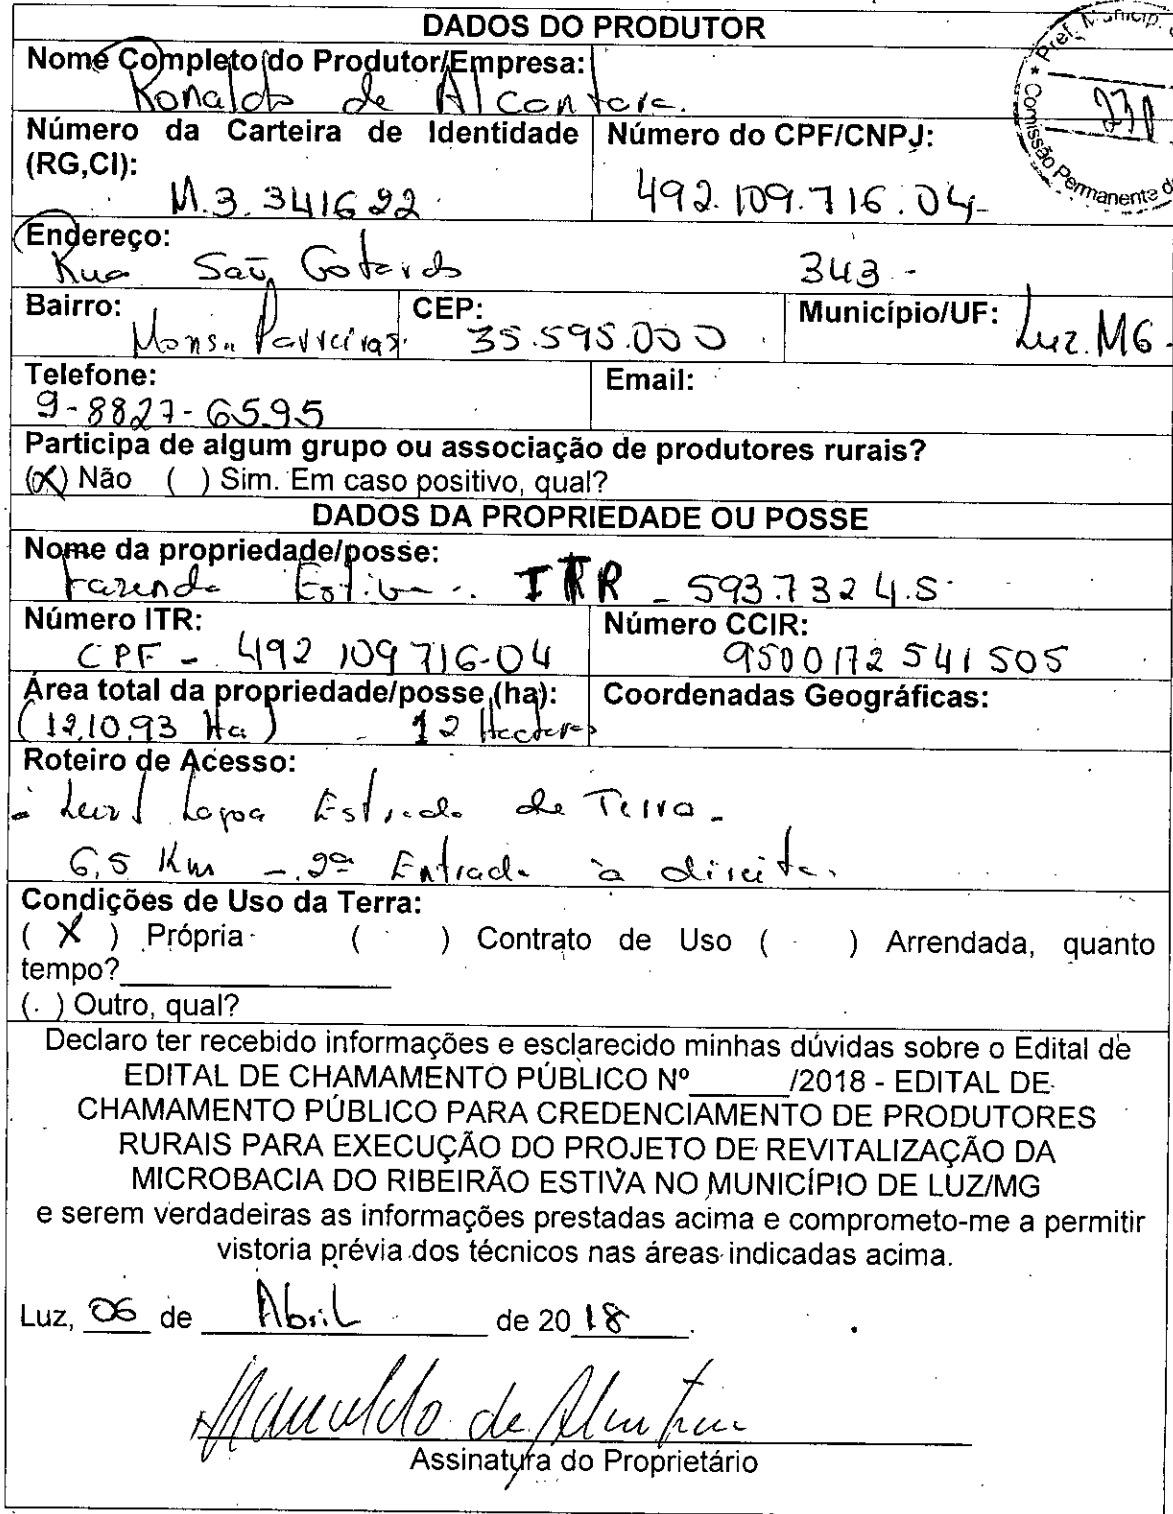 DADOS DO PRODUTOR
Nome Completo do Produtor/Empresa:
Ronaldo de Alcantara.
Número da Carteira de Identidade (RG,CI):
M.3.341622.
Número do CPF/CNPJ:
492.109.716.04-
Endereço:
Rua São Gotardo 343-
Bairro: Mons. Parreiras.
CEP: 35.595.000.
Município/UF: Luz.MG-
Telefone:
9-8827-6595
Email:
Participa de algum grupo ou associação de produtores rurais?
(X) Não ( ) Sim. Em caso positivo, qual?
DADOS DA PROPRIEDADE OU POSSE
Nome da propriedade/posse:
Fazenda Estiva - ITR - 593.7324.5
Número ITR:
CPF - 492 109 716-04
Número CCIR:
9500172541505
Área total da propriedade/posse (ha):
(12,10.93 Ha) - 12 Hectares
Coordenadas Geográficas:
Roteiro de Acesso:
- Luz/ Lagoa Estrada de Terra -
6,5 Km - 2ª Entrada à direita.
Condições de Uso da Terra:
( X ) Própria ( ) Contrato de Uso ( ) Arrendada, quanto
tempo?______________
( ) Outro, qual?
Declaro ter recebido informações e esclarecido minhas dúvidas sobre o Edital de
EDITAL DE CHAMAMENTO PÚBLICO Nº______/2018 - EDITAL DE
CHAMAMENTO PÚBLICO PARA CREDENCIAMENTO DE PRODUTORES
RURAIS PARA EXECUÇÃO DO PROJETO DE REVITALIZAÇÃO DA
MICROBACIA DO RIBEIRÃO ESTIVA NO MUNICÍPIO DE LUZ/MG
e serem verdadeiras as informações prestadas acima e comprometo-me a permitir
vistoria prévia dos técnicos nas áreas indicadas acima.
Luz, 06 de Abril de 2018.
Assinatura do Proprietário
Pref. Municip.
Comissão Permanente d